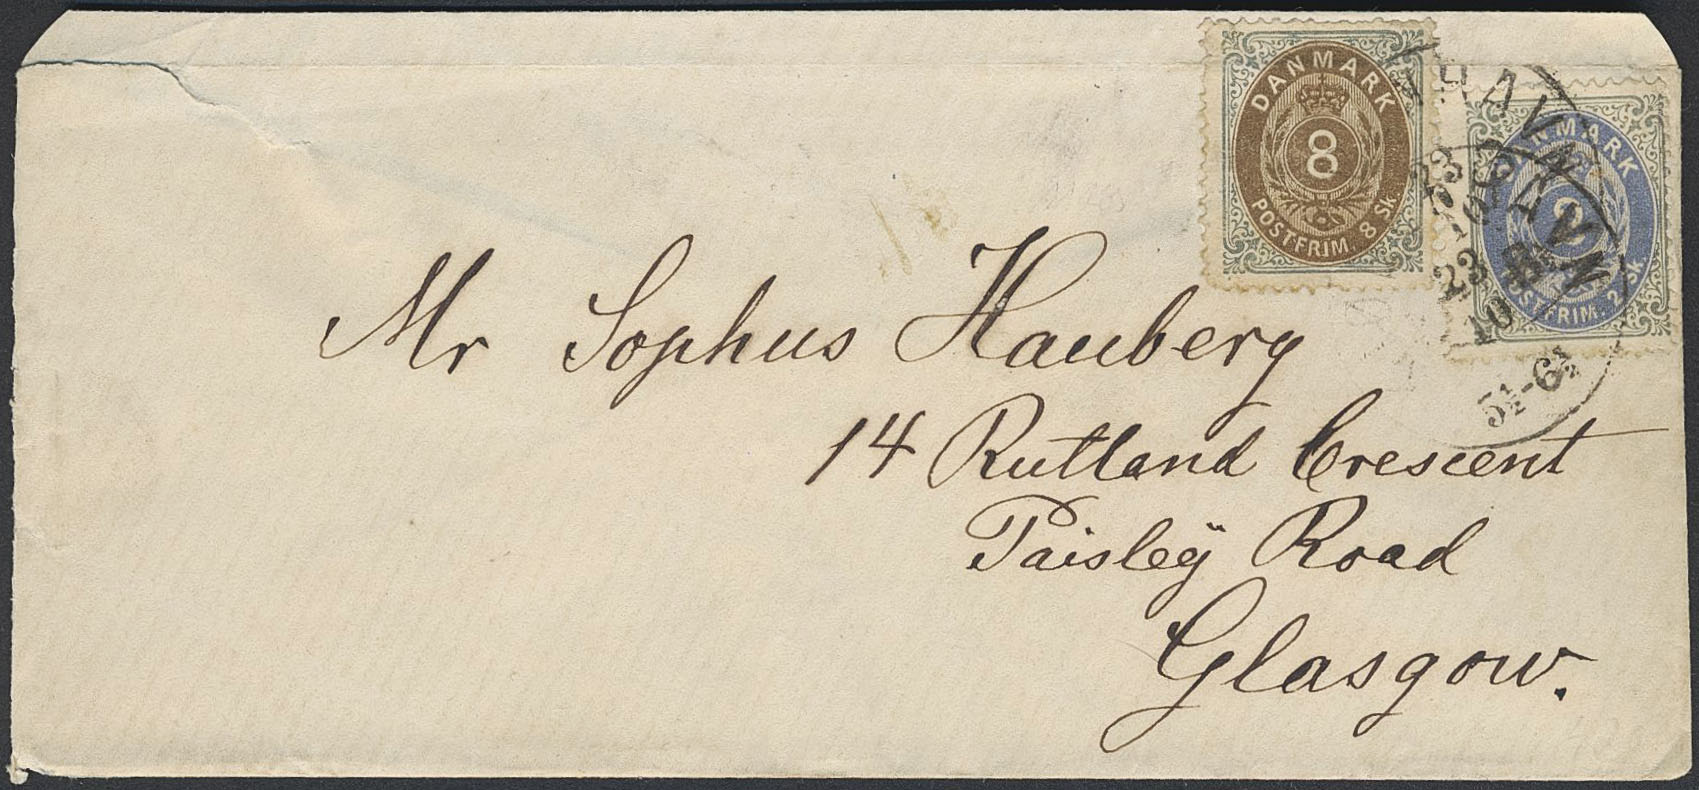 DANMARK
8
POSTFRIM. 8 Sk
DANMARK
2
POSTFRIM. 2 Sk
23
10
23
10
5½-6½
Mr Sophus Hauberg
14 Rutland Crescent
Paisleÿ Road
Glasgow.